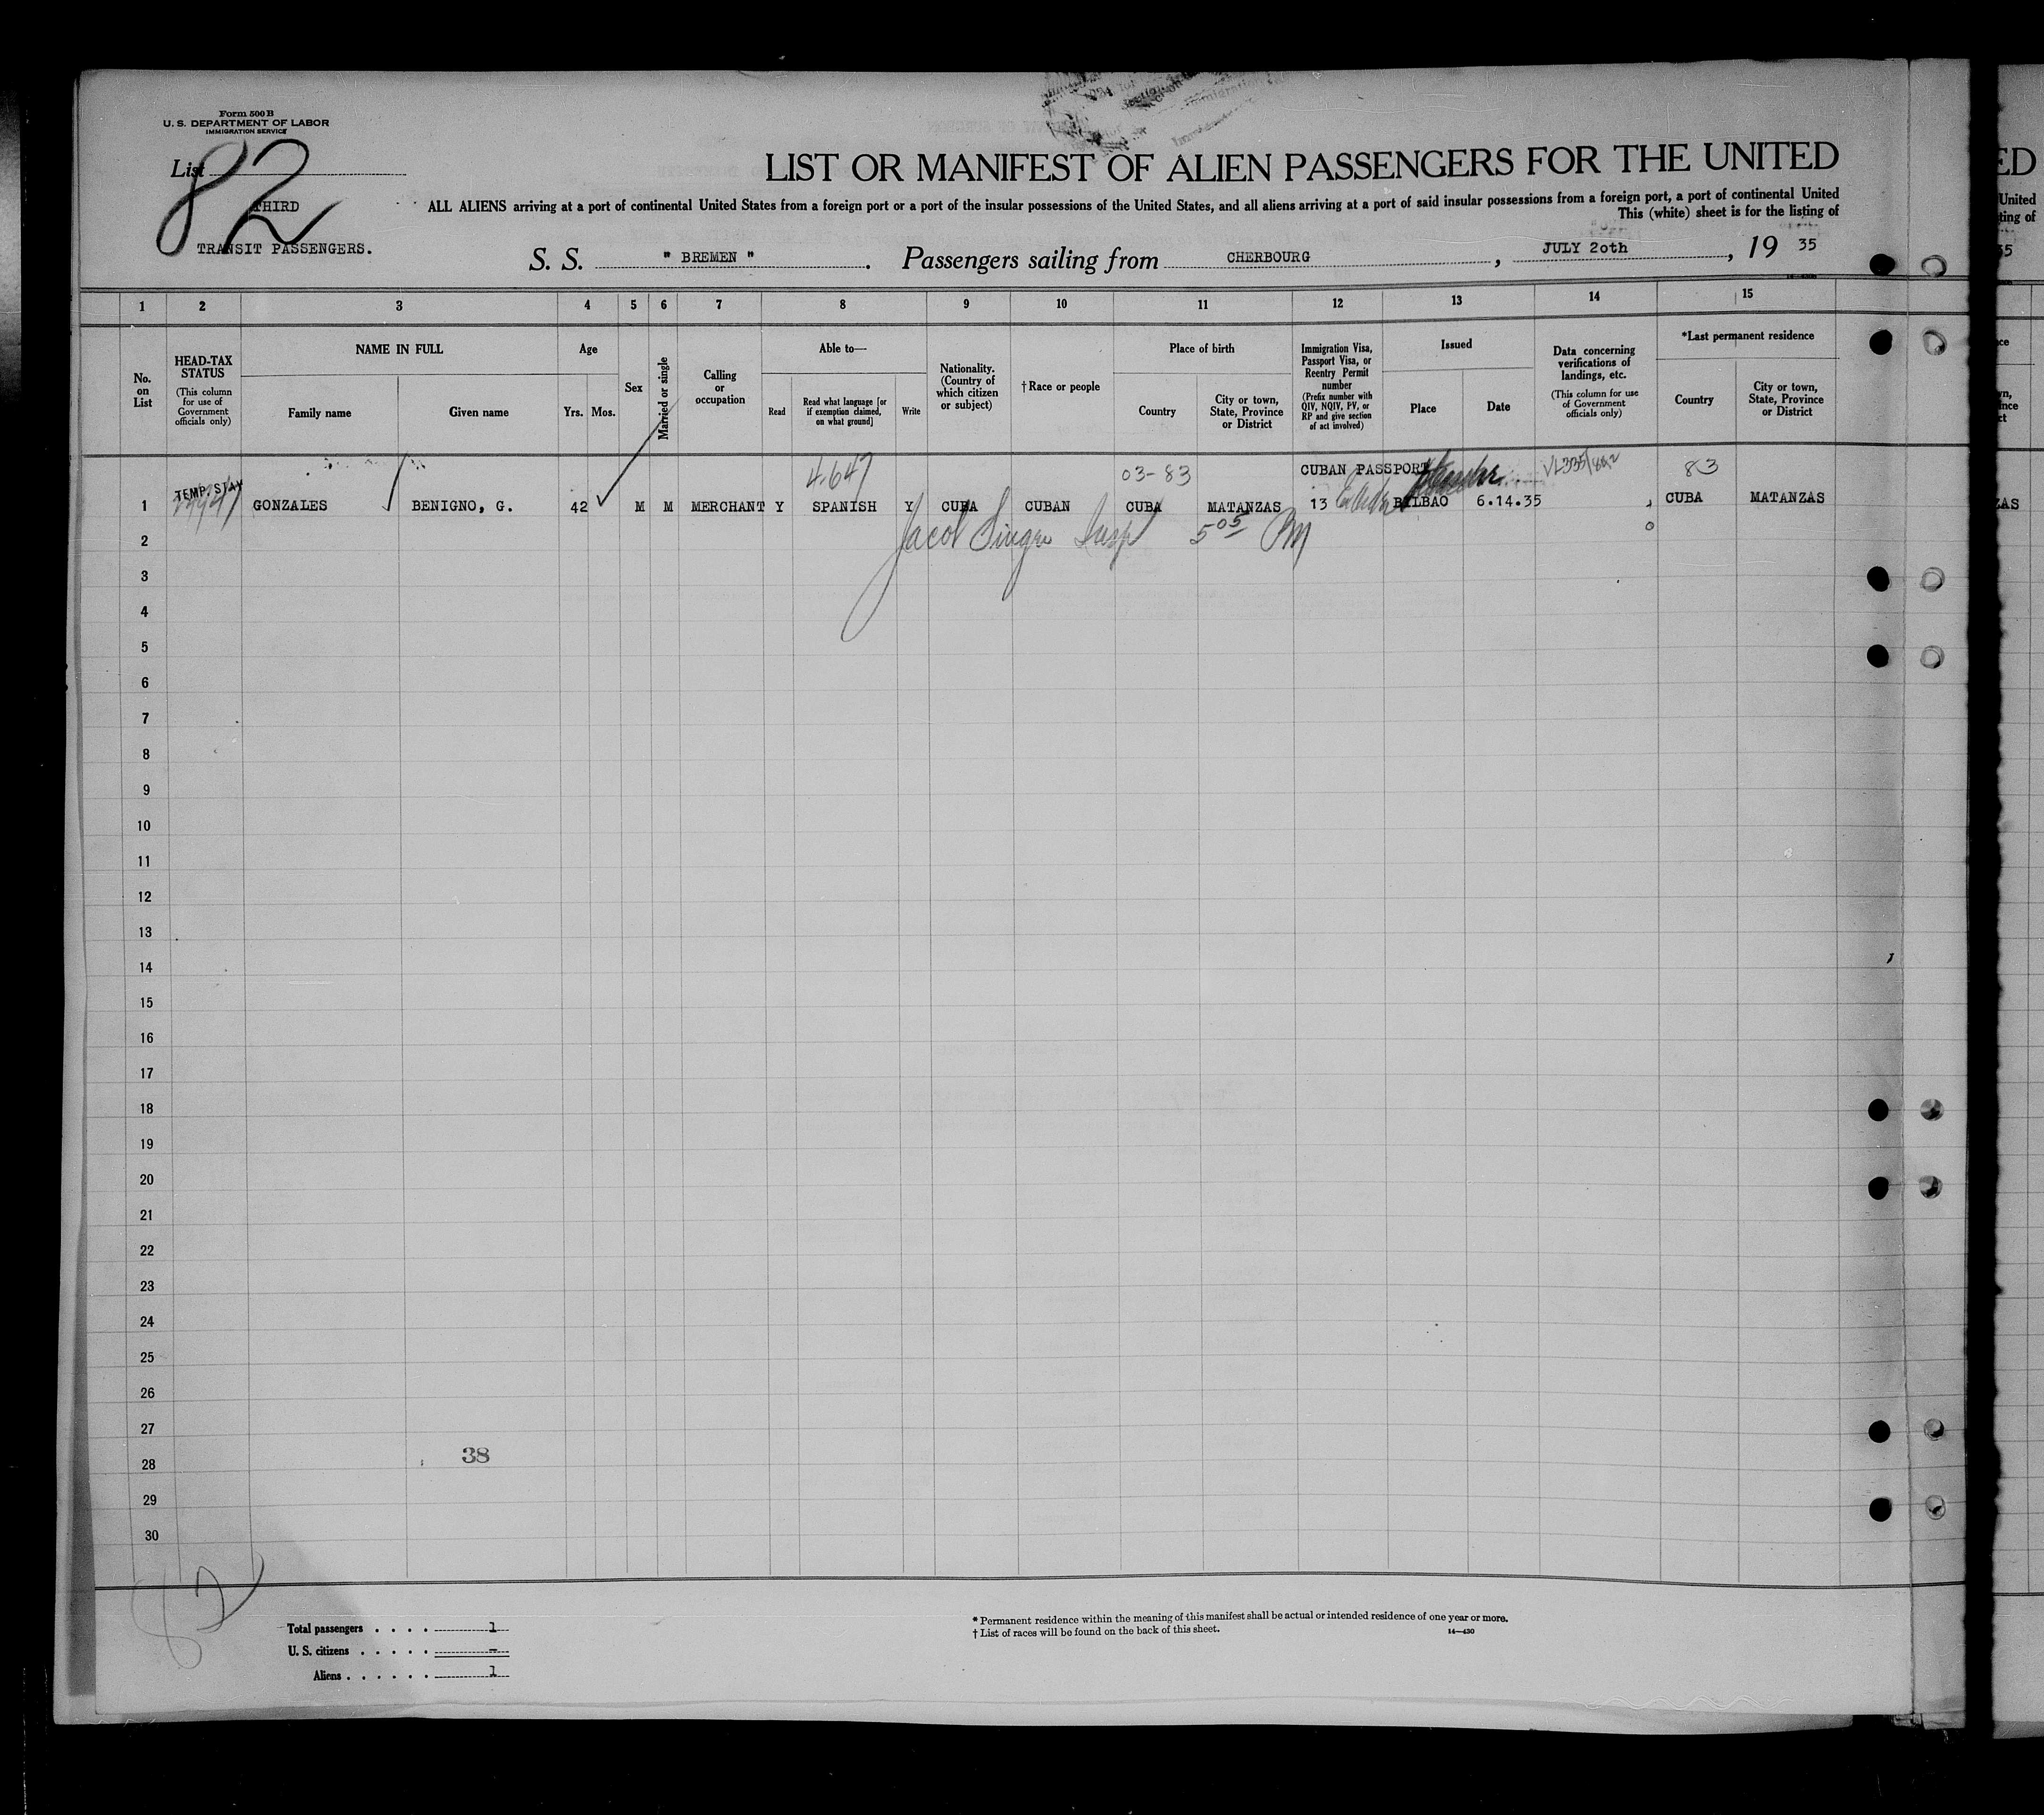 Form 500 B
U. S. DEPARTMENT OF LABOR
IMMIGRATION SERVICE
List
82
THIRD
TRANSIT PASSENGERS.
LIST OR MANIFEST OF ALIEN PASSENGERS FOR THE UNITED
ALL ALIENS arriving at a port of continental United States from a foreign port or a port of the insular possessions of the United States, and all aliens arriving at a port of said insular possessions from a foreign port, a port of continental United
This (white) sheet is for the listing of
S. S. " BREMEN ". Passengers sailing from CHERBOURG, JULY 2oth, 19 35
1 2 3 4 5 6 7 8 9 10 11 12 13 14 15
No. on List
HEAD-TAX STATUS
(This column for use of Government officials only)
NAME IN FULL
Family name
Given name
Age
Yrs. Mos.
Sex
Married or single
Calling or occupation
Able to—
Read
Read what language [or if exemption claimed, on what ground]
Write
Nationality. (Country of which citizen or subject)
†Race or people
Place of birth
Country
City or town, State, Province or District
Immigration Visa, Passport Visa, or Reentry Permit number
(Prefix number with QIV, NQIV, PV, or RP and give section of act involved)
Issued
Place
Date
Data concerning verifications of landings, etc.
(This column for use of Government officials only)
*Last permanent residence
Country
City or town, State, Province or District
4-647 03-83 CUBAN PASSPORT 83
TEMP. STAY
1 GONZALES BENIGNO, G. 42 M M MERCHANT Y SPANISH Y CUBA CUBAN CUBA MATANZAS 13 BILBAO 6.14.35 CUBA MATANZAS
Jacob Singer Insp 5 05 PM
2
3
4
5
6
7
8
9
10
11
12
13
14
15
16
17
18
19
20
21
22
23
24
25
26
27
38
28
29
30
82
Total passengers . . . . 1
U. S. citizens . . . . . –
Aliens . . . . . . 1
* Permanent residence within the meaning of this manifest shall be actual or intended residence of one year or more.
† List of races will be found on the back of this sheet.
14—430
ED
United
ting of
35